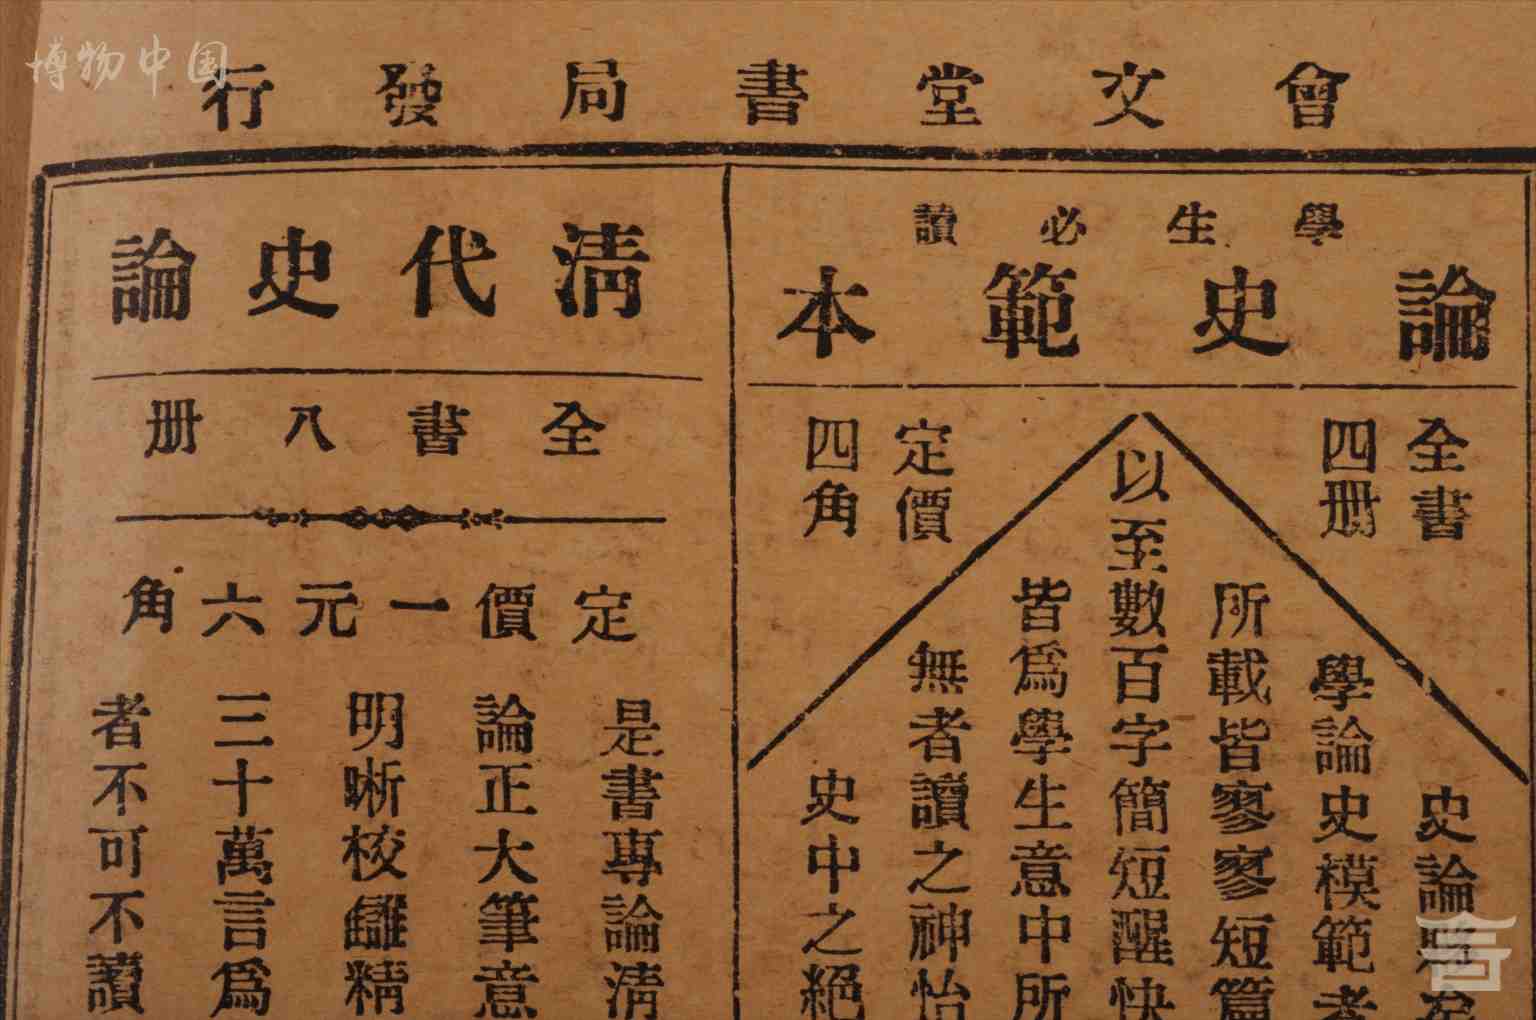 博物中国
會文堂書局發行
學生必讀
論史範本
全書
四册
定價
四角
史論
學論史模範者
所載皆寥寥短篇
以至數百字簡短醒快
皆爲學生意中所
無者讀之神怡
史中之絕
清代史論
全書八册
定價一元六角
是書專論清
論正大筆意
明晰校讎精
三十萬言爲
者不可不讀